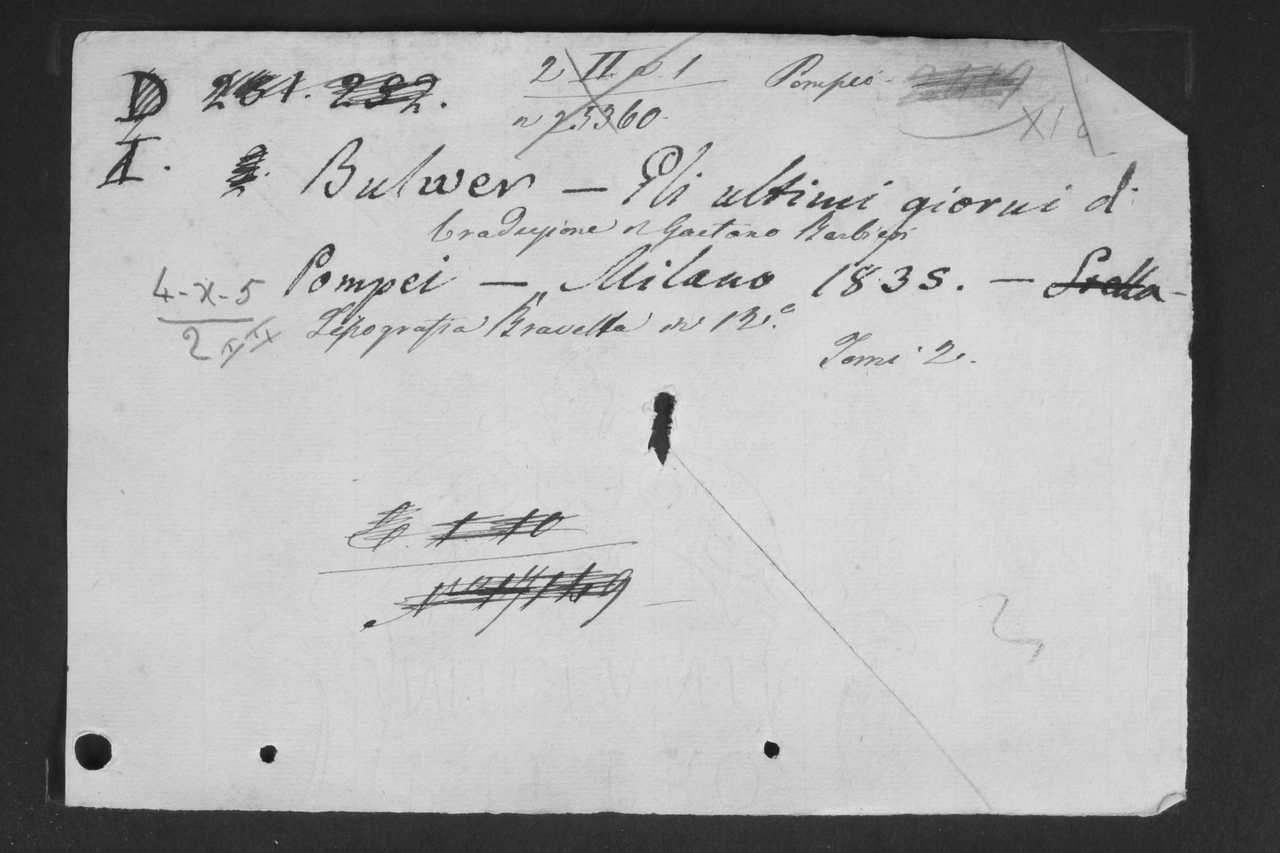 D 261. 232. 2 II. a. 1 Pompei
n 25360.
I. Bulwer — Gli ultimi giorni di
traduzione di Gaetano Barbieri
4-X-5 Pompei — Milano 1835. —
2 Tipografia Bravetta in 12.°
Tomi 2.
1. 10